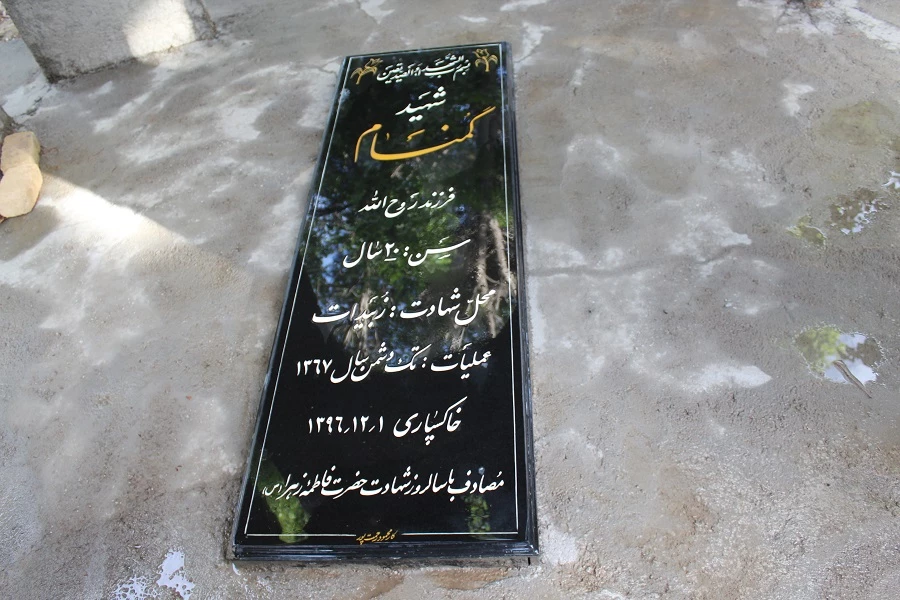 بسم رب الشهداء و الصدیقین
شهید
گمنام
فرزند روح الله
سن: ۲۰ سال
محل شهادت: زبیدات
عملیات: تک دشمن سال ۱۳۶۷
خاکسپاری ۱۳۹۶/۱۲/۱
مصادف با سالروز شهادت حضرت فاطمه زهرا (س)